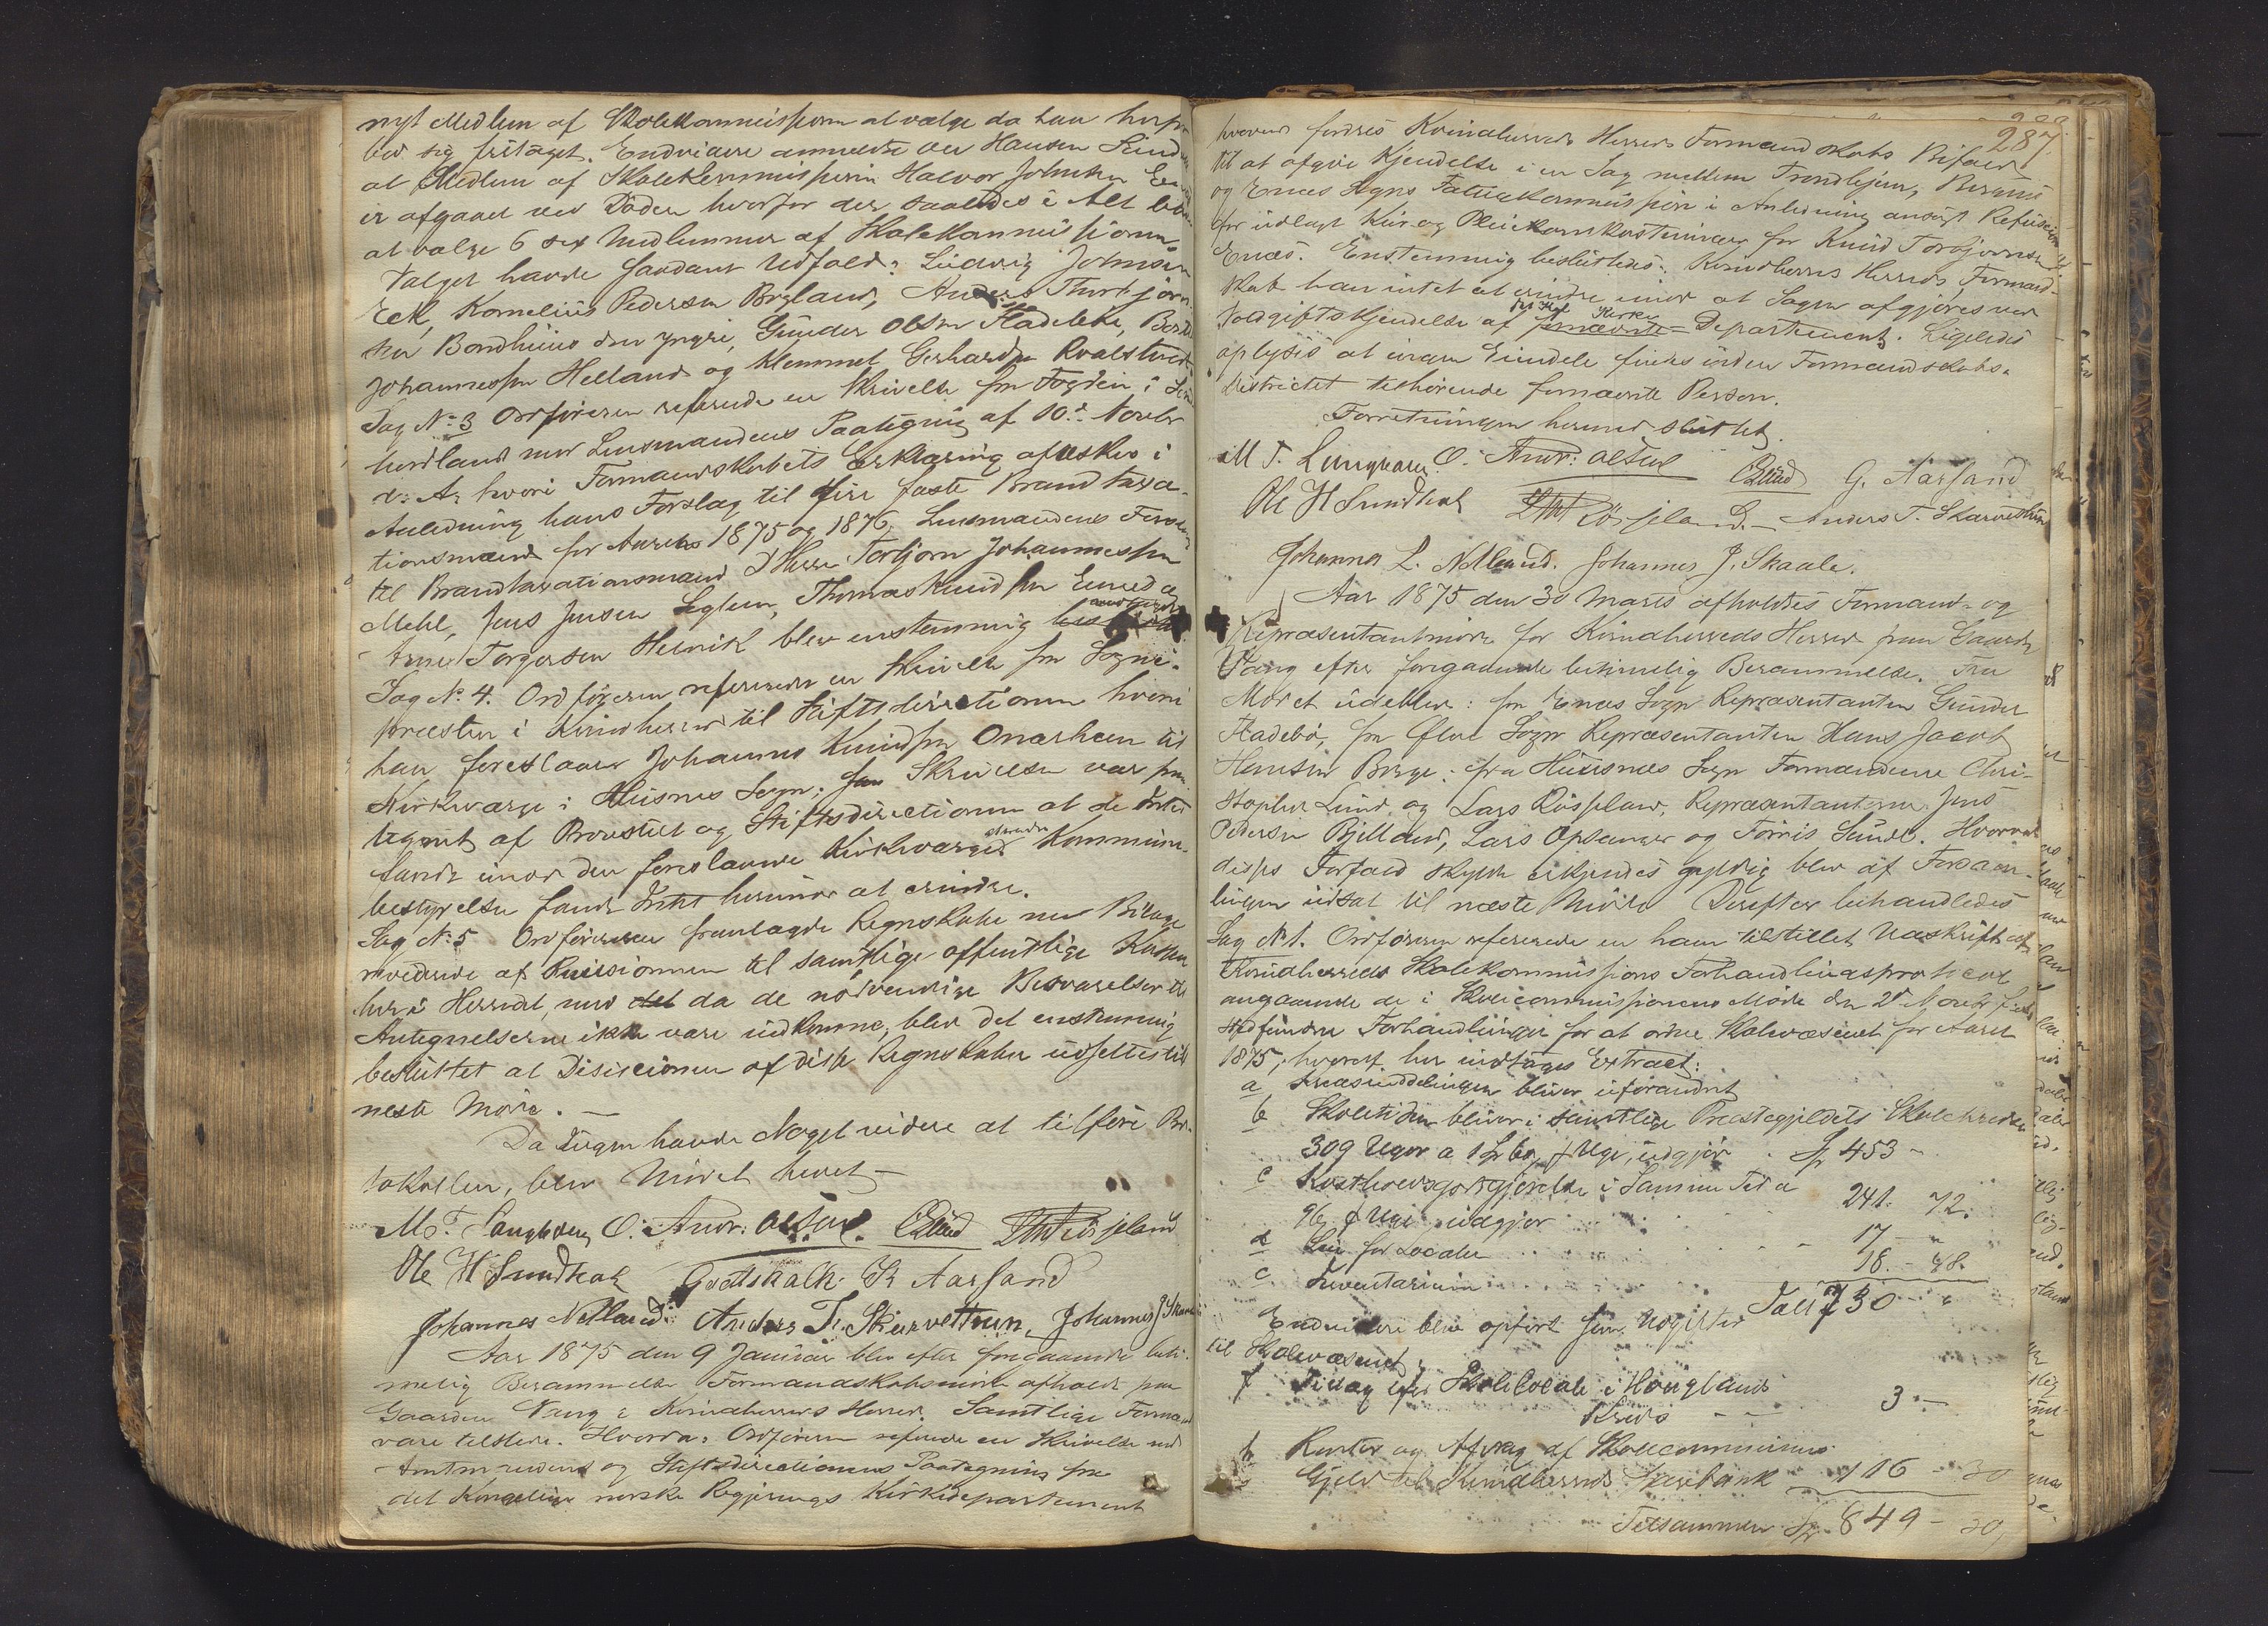 nyt Medlem af Skolekommissionen at vælge da han
bad sig fritaget. Endvidere anmeldte Ole Hansen
at Medlem af Skolekommissionen Halvor Johnsen
er afgaaet ved Døden hvorfor der saaledes i Alt blev
at vælge 6 sex Medlemmer af Skolekommissionen.
Valget havde saadant Udfald: Ludvig Johnsen
Eek, Kornelius Pedersen Bogland, Anders Thorbjørn-
sen Bondhuus den yngre, Gunder Olsen Fladebø,
Johannessen Helland og Klemmet Gerhardsen Kvalstved
Sag No 3 Ordføreren refererede en Skrivelse fra Fogden i Sønd
hordland med Lensmandens Paategning af 10de Novbr
d: A: hvori Formandskabets Erklæring afæskes i
Anledning hans Forslag til fire faste Brandtaxa-
tionsmænd for Aarene 1875 og 1876. Lensmandens Forslag
til Brandtaxationsmænd d'Herr Torbjørn Johannessen
Mehl, Jens Jensen Seglem, Thomas Knudsen Eneed og
Arne Torgersen Hesvik blev enstemmig
Sag No 4. Ordføreren refererede en Skrivelse fra Sogne-
præsten i Kvindherred til Stiftsdirectionen hvori
han foreslaaer Johannes Knudsen Onarheim til
Kirkeværge i Huusnes Sogn; Skrivelsen var paa
tegnet af Provstiet og Stiftsdirectionen at de Intet
havde imod den foreslaaede Kirkeværge. Kommune-
bestyrelsen fandt Intet herimod at erindre.
Sag No 5 Ordføreren fremlagde Regnskabe med Bilage
reviderede af Revisionen til samtlige offentlige Kasser
her i Herredet, med det da de nødvendige Besvarelser til
Antegnelserne ikke vare indkomne, blev det enstemmig
besluttet at Disicionen af disse Regnskaber udsettes til
neste Møde. —
Da Ingen havde Noget videre at tilføre Pro-
tokollen, blev Mødet hevet —
M. T. Langhdey O. Andr: Olsen. CLund LHRøsseland
Ole H Sundhah Gottskalk K Aarsand
Johannes Netland. Anders T. Skarvettun, Johannes J Skaale
Aar 1875 den 9 Januar blev efter foregaaende beti-
melig Berammelse Formandskabsmøde afholdt paa
Gaarden Vang i Kvindherreds Herred. Samtlige Formænd
vare tilstede. Hvorda: Ordføreren refererede en Skrivelse med
Amtmandens og Stiftsdirectionens Paategning fra
det Kongelige norske Regjerings Kirkedepartement
287
hvorved fordres Kvindherreds Herreds Formandskabs Bifald
til at afgive Kjendelse i en Sag mellem Trondhjems, Bergens
og Enæs Sogns Fattigkommission i Anledning ansøgt Refusion
for udlagt Kur og Pleieomkostninger for Knud Torbjørnsen
Enæs. Enstemmig besluttedes: Kvindherreds Herreds Formand-
skab har intet at erindre imod at Sagen afgjøres ved
Voldgiftskjendelse af Kirke- Departement. Ligeledes
oplyses at ingen Eiendele findes inden Formandskabs-
districtet tilhørende fornævnte Person.
Forretningen hermed sluttet.
M T. O. Andr: Olsen CLund G. Aarsand
Ole H Sundhah LHRøsseland. — Anders T. Skarvettun
Johannes L. Netland. Johannes J. Skaale.
Aar 1875 den 30 Marts afholdtes Formand- og
Repræsentantmøde for Kvindherreds Herred paa Gaarden
Vang efter foregaaende betimelig Berammelse. Fra
Mødet udebleve: fra Enæs Sogn Repræsentanten Gunder
Fladebø, fra Ølve Sogn Repræsentanten Hans Jacob
Hansen Borge: fra Huusnæs Sogn Formændene Chri-
stopher Lund og Lars Røsseland, Repræsentanterne Jens
Pedersen Bjelland, Lars Opsanger og Tørris Sunde. Hvorvidt
disses Forfald skulde erkjendes gyldig blev af Forsam-
lingen udsat til næste Møde Derefter behandledes
Sag No 1. Ordføreren refererede en ham tilstillet Udskrift af
Kvindherreds Skolekommissions Forhandlingsprotocol
angaaende de i Skolecommissionens Møde den 2de Novbr
stedfundne Forhandlinger for at ordne Skolevæsenet for Aaret
1875, hvoraf her indtages Extract:
a Kredsinddelingen bliver uforandret
b Skoletiden bliver i samtlige Præstegjeldets Skolekredse
309 Uger a 1 Sp Uge, udgjør Sp 453 -
c Kostholdsgodtgjørelse i Samme Tid a
96 Uge udgjør 241. 72.
d Leie for Locale 17 - "
e Inventarium 18. - 48.
Tall 730 - "
Endvidere blev opført som Udgifter
til Skolevæsenet:
f Tillæg Skolelocale i Houglands
Kreds - - 3 -
h Renter og Afdrag af Skolecommunens
Gjeld til Kvindherreds Sparebank 116 30
Tilsammen Sp. 849 - 30,